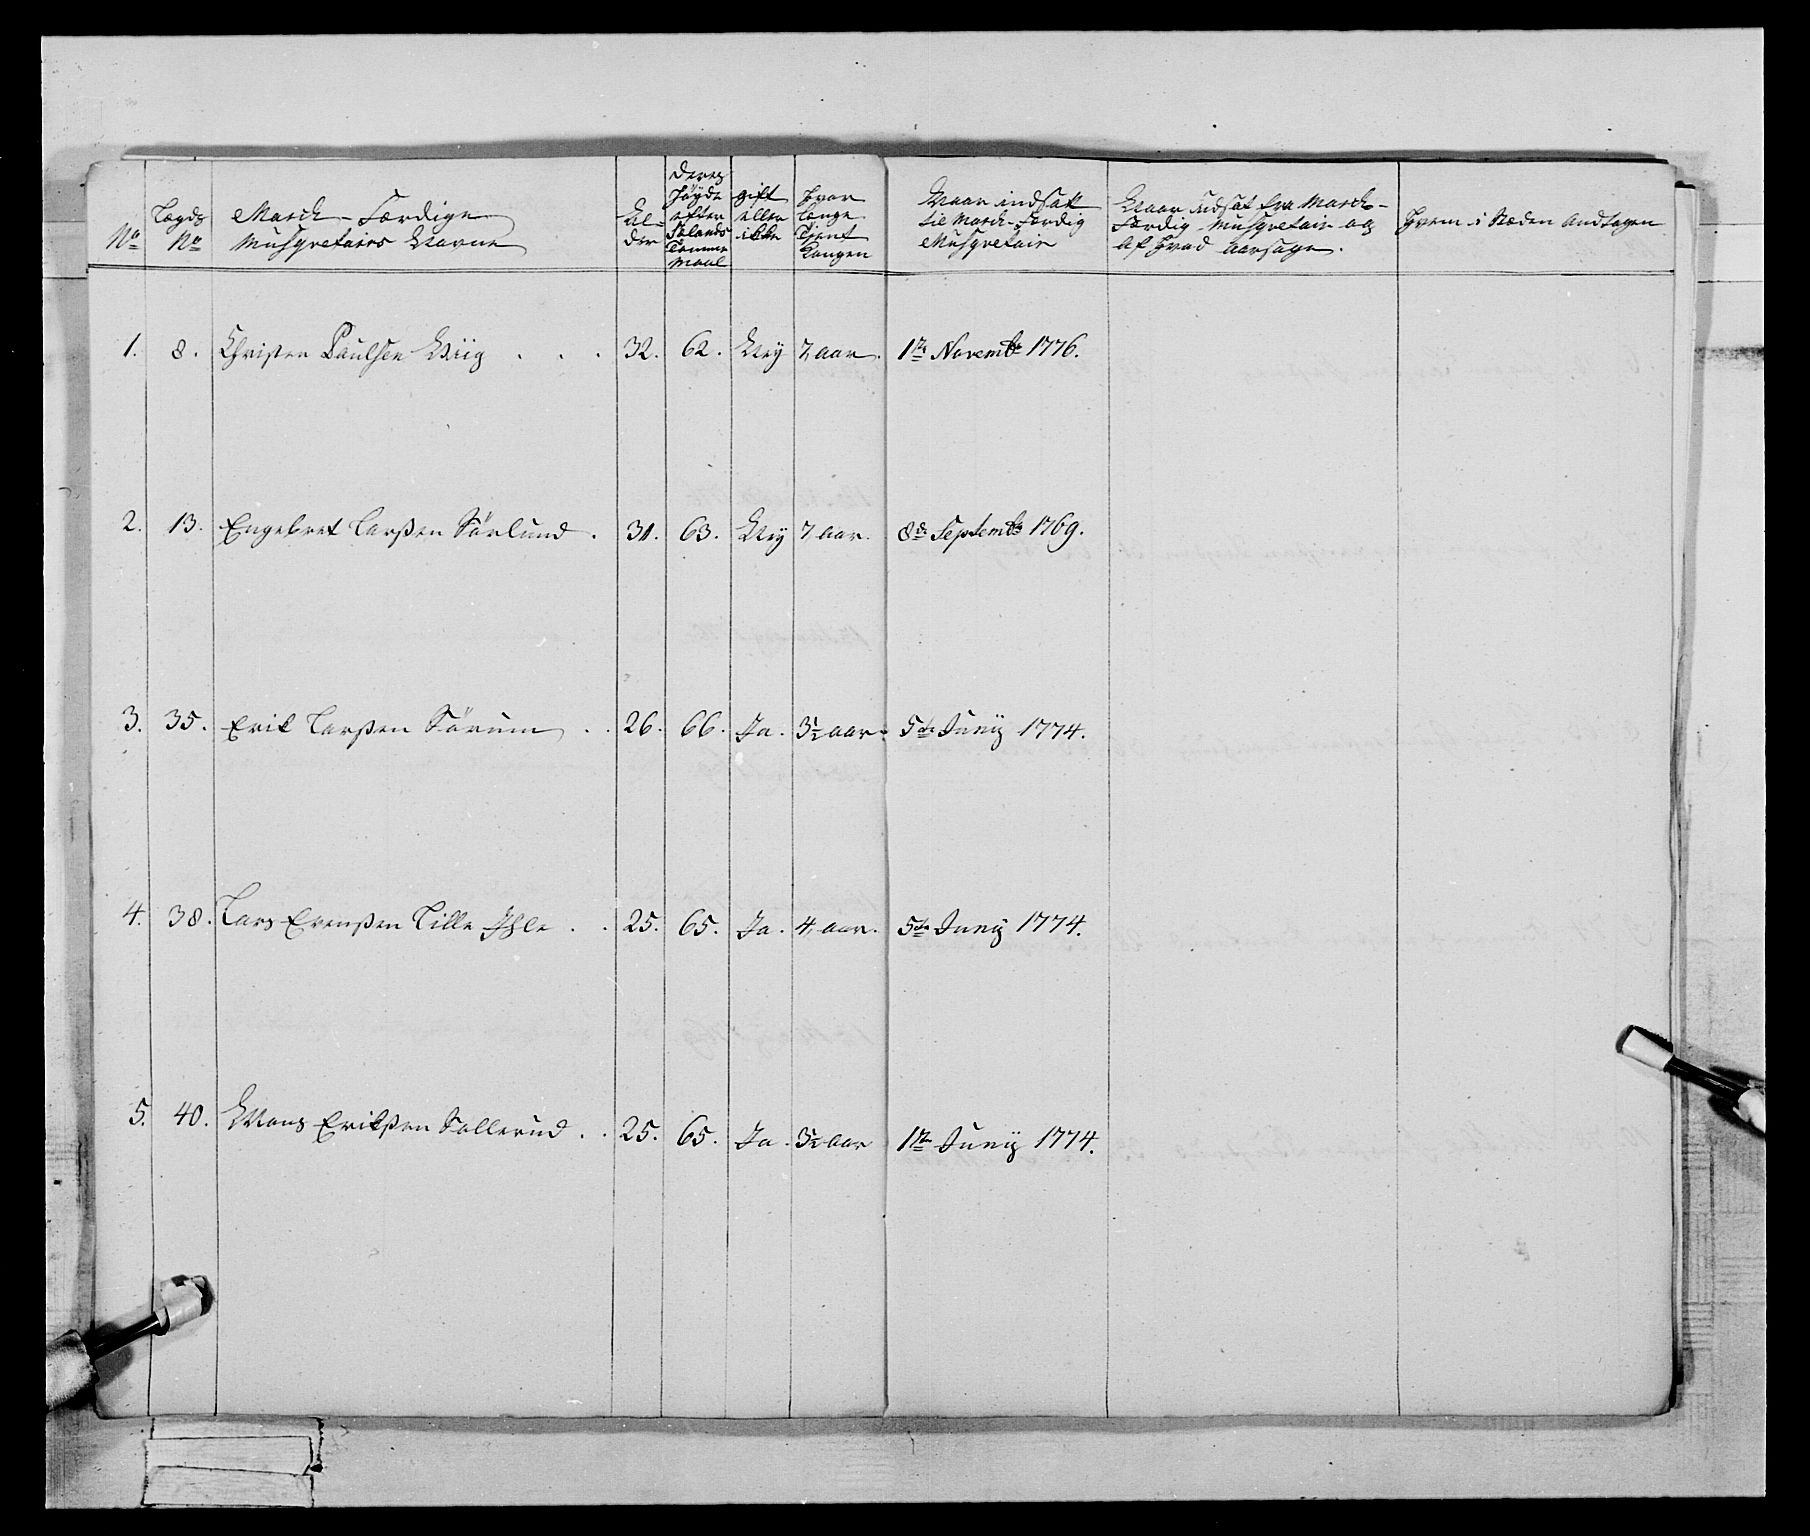 No
Lægds No
March-Færdige Musqvetairs Navne
Al-der
Deres Høyde efter Sælands Tomme Maal
gift eller ikke
Hvor længe Tient Kongen
Naar indsat til March-Færdig Musqvetair
Naar Udsat fra March-Færdig Musqvetair og af Hvad Aarsage.
Hvem i Stæden Andtagen
1. 8. Christen Paulsen Wiig . . . 32. 62. Ney 7, aar. 1te Novembr 1776.
2. 13. Engebret Larssen Sørlund . 31. 63. Ney 7 aar. 8de Septembr 1769.
3. 35. Erik Larssen Sørum . . 26. 66. Ja. 3½ aar. 5te Juny 1774.
4. 38. Lars Evenssen Lille Ihle . . 25. 65. Ja. 4, aar. 5te Juny 1774.
5. 40. Mons Erikssen Sollerud . . 25. 65. Ja. 3½ aar 1te Juny 1774.